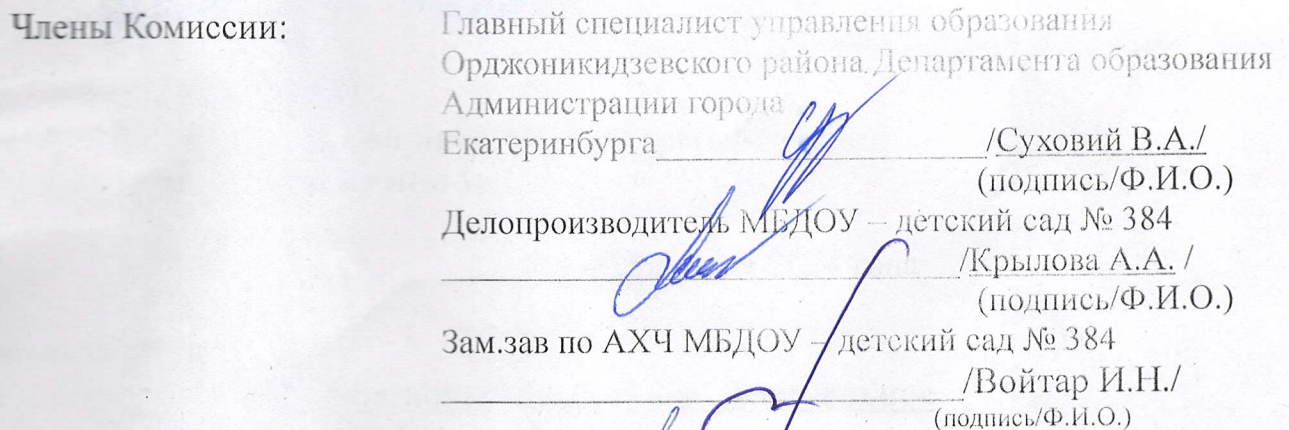 Члены Комиссии:
Главный специалист управления образования
Орджоникидзевского района Департамента образования
Администрации города
Екатеринбурга______________________/Суховий В.А./
(подпись/Ф.И.О.)
Делопроизводитель МБДОУ – детский сад № 384
__________________________________/Крылова А.А. /
(подпись/Ф.И.О.)
Зам.зав по АХЧ МБДОУ – детский сад № 384
__________________________________/Войтар И.Н./
(подпись/Ф.И.О.)